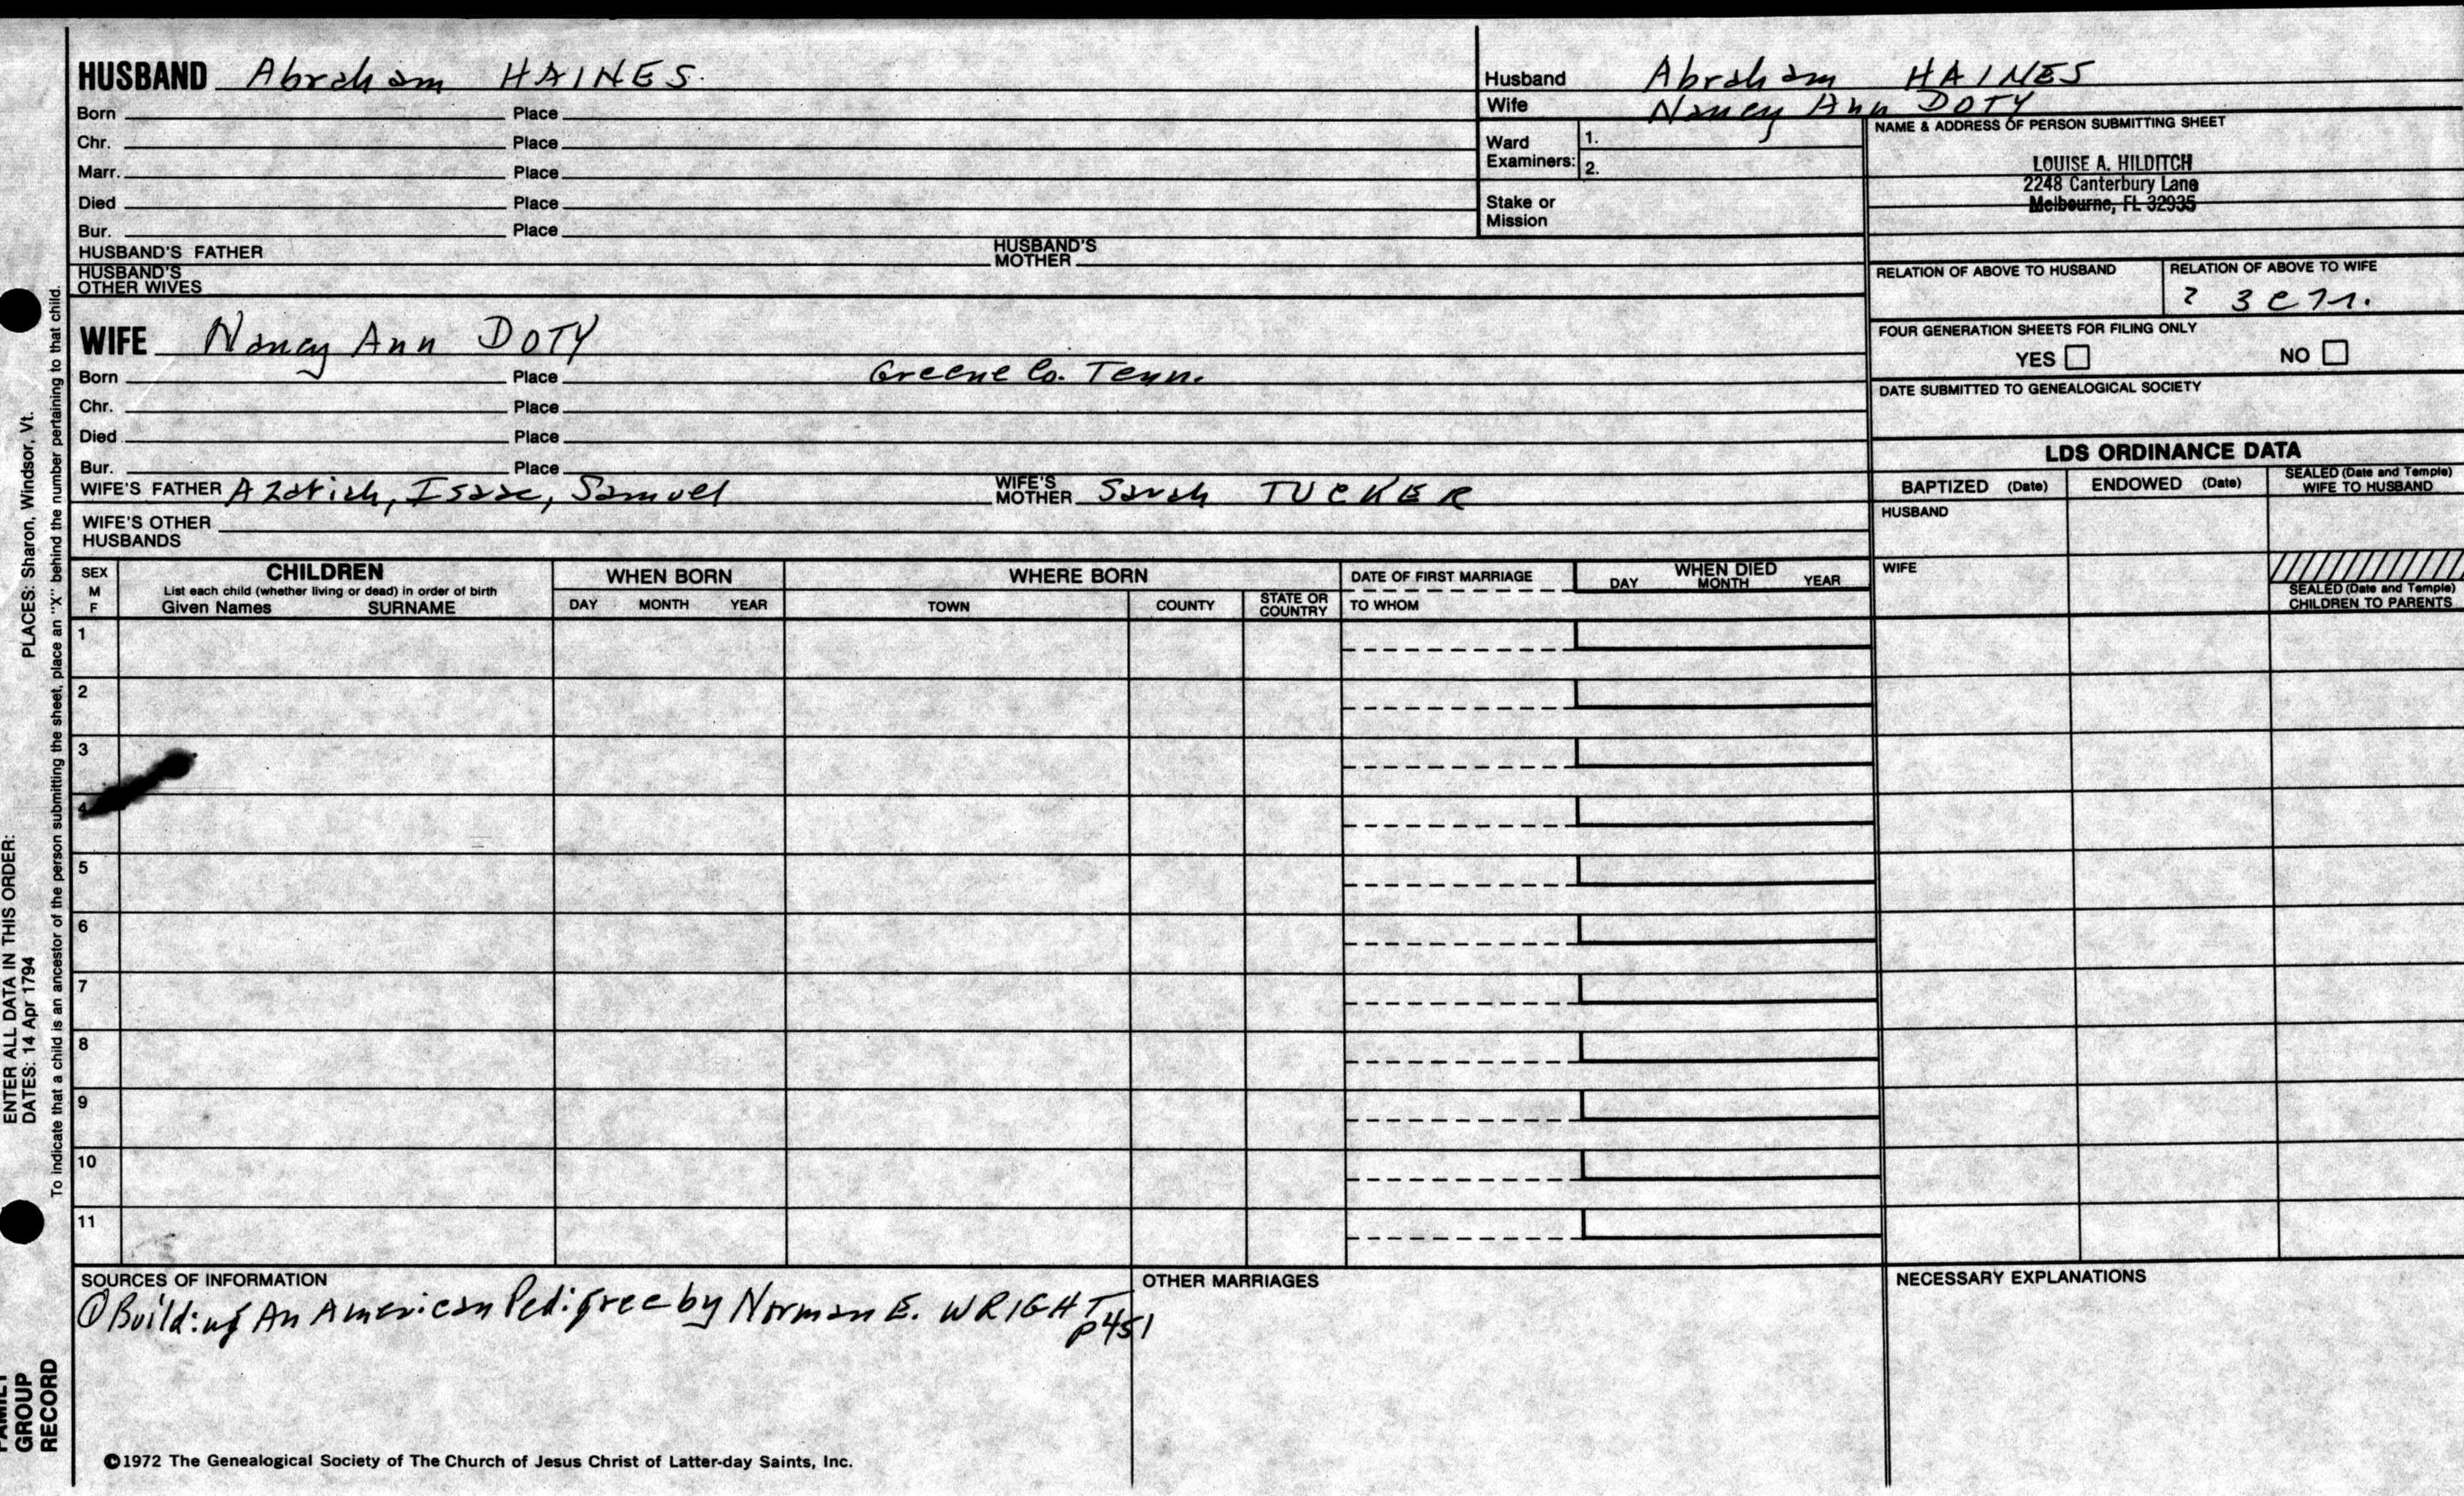 HUSBAND Abraham HAINES.
Born Place
Chr. Place
Marr. Place
Died Place
Bur. Place
HUSBAND'S FATHER HUSBAND'S MOTHER
HUSBAND'S OTHER WIVES
Husband Abraham HAINES
Wife Nancy Ann DOTY
Ward Examiners: 1.
2.
Stake or Mission
NAME & ADDRESS OF PERSON SUBMITTING SHEET
LOUISE A. HILDITCH
2248 Canterbury Lane
Melbourne, FL 32935
RELATION OF ABOVE TO HUSBAND
RELATION OF ABOVE TO WIFE
? 3
FOUR GENERATION SHEETS FOR FILING ONLY
YES NO
DATE SUBMITTED TO GENEALOGICAL SOCIETY
WIFE Nancy Ann DOTY
Born Place Greene Co. Tenn.
Chr. Place
Died Place
Bur. Place
WIFE'S FATHER Azariah, Isaac, Samuel WIFE'S MOTHER Sarah TUCKER
WIFE'S OTHER HUSBANDS
LDS ORDINANCE DATA
BAPTIZED (Date) ENDOWED (Date) SEALED (Date and Temple) WIFE TO HUSBAND
HUSBAND
WIFE
SEALED (Date and Temple) CHILDREN TO PARENTS
SEX M F
CHILDREN
List each child (whether living or dead) in order of birth
Given Names SURNAME
WHEN BORN
DAY MONTH YEAR
WHERE BORN
TOWN COUNTY STATE OR COUNTRY
DATE OF FIRST MARRIAGE
TO WHOM
WHEN DIED
DAY MONTH YEAR
1
2
3
4
5
6
7
8
9
10
11
SOURCES OF INFORMATION
① Building An American Pedigree by Norman E. WRIGHT
p451
OTHER MARRIAGES
NECESSARY EXPLANATIONS
©1972 The Genealogical Society of The Church of Jesus Christ of Latter-day Saints, Inc.
FAMILY GROUP RECORD
ENTER ALL DATA IN THIS ORDER:
DATES: 14 Apr 1794 PLACES: Sharon, Windsor, Vt.
To indicate that a child is an ancestor of the person submitting the sheet, place an "X" behind the number pertaining to that child.